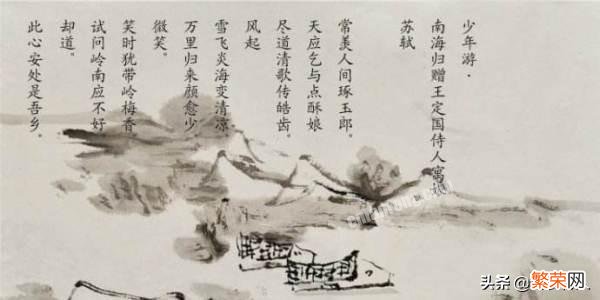 少年游·
南海归赠王定国侍人寓娘
苏轼
常羡人间琢玉郎。
天应乞与点酥娘
尽道清歌传皓齿。
风起
雪飞炎海变清凉。
万里归来颜愈少
微笑。
笑时犹带岭梅香。
试问岭南应不好。
却道。
此心安处是吾乡。
头条 @
繁荣网